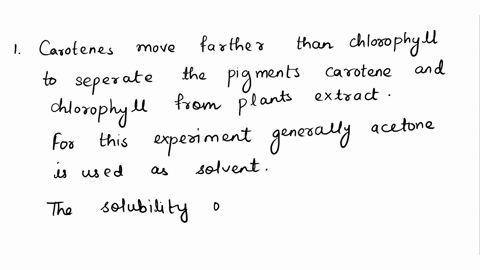 1. Carotenes move farther than chlorophyll
to seperate the pigments carotene and
chlorophyll from plants extract.
For this experiment generally acetone
is used as solvent.
The solubility o